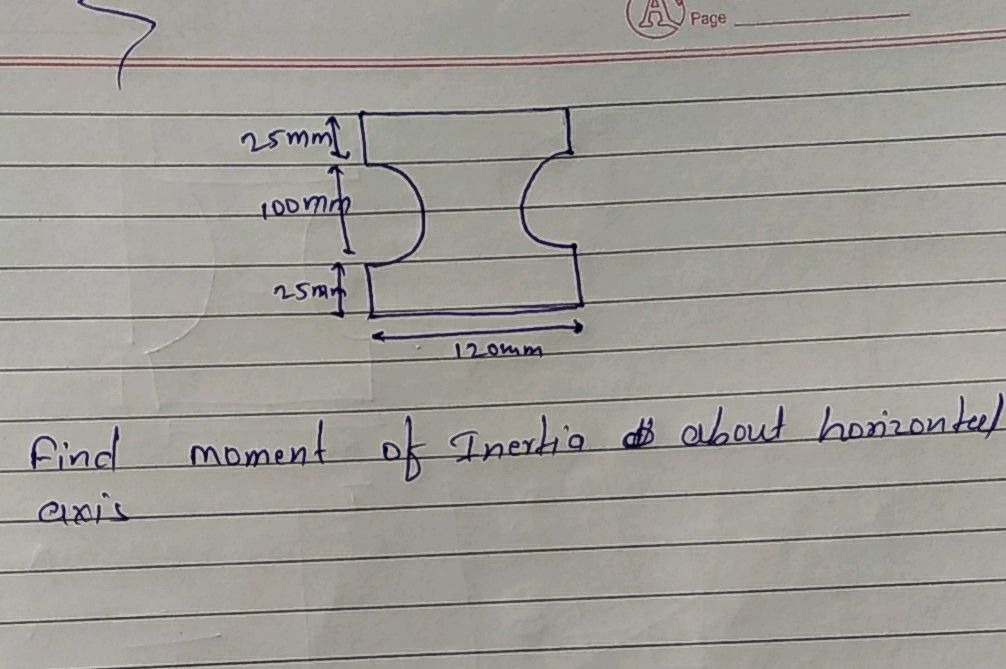 A Page
25mm
100mm
25mm
120mm
Find moment of Inertia about horizontal
axis